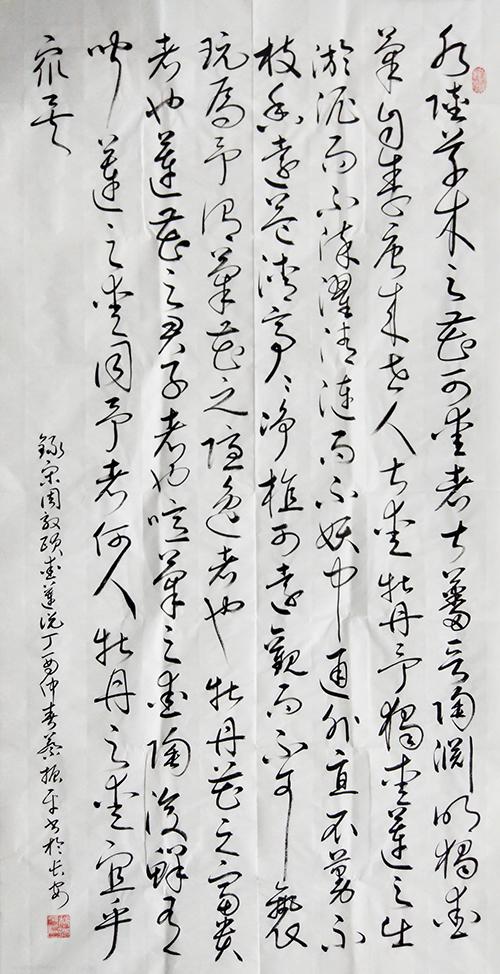 水陸草木之花可愛者甚蕃晉陶淵明獨愛
菊自李唐來世人甚愛牡丹予獨愛蓮之出
淤泥而不染濯清漣而不妖中通外直不蔓不
枝香遠益清亭〻淨植可遠觀而不可褻
玩焉予謂菊花之隱逸者也牡丹花之富貴
者也蓮花之君子者也噫菊之愛陶後鮮有
聞蓮之愛同予者何人牡丹之愛宜乎
眾矣
錄宋周敦頤愛蓮說丁酉仲春振平書於長安